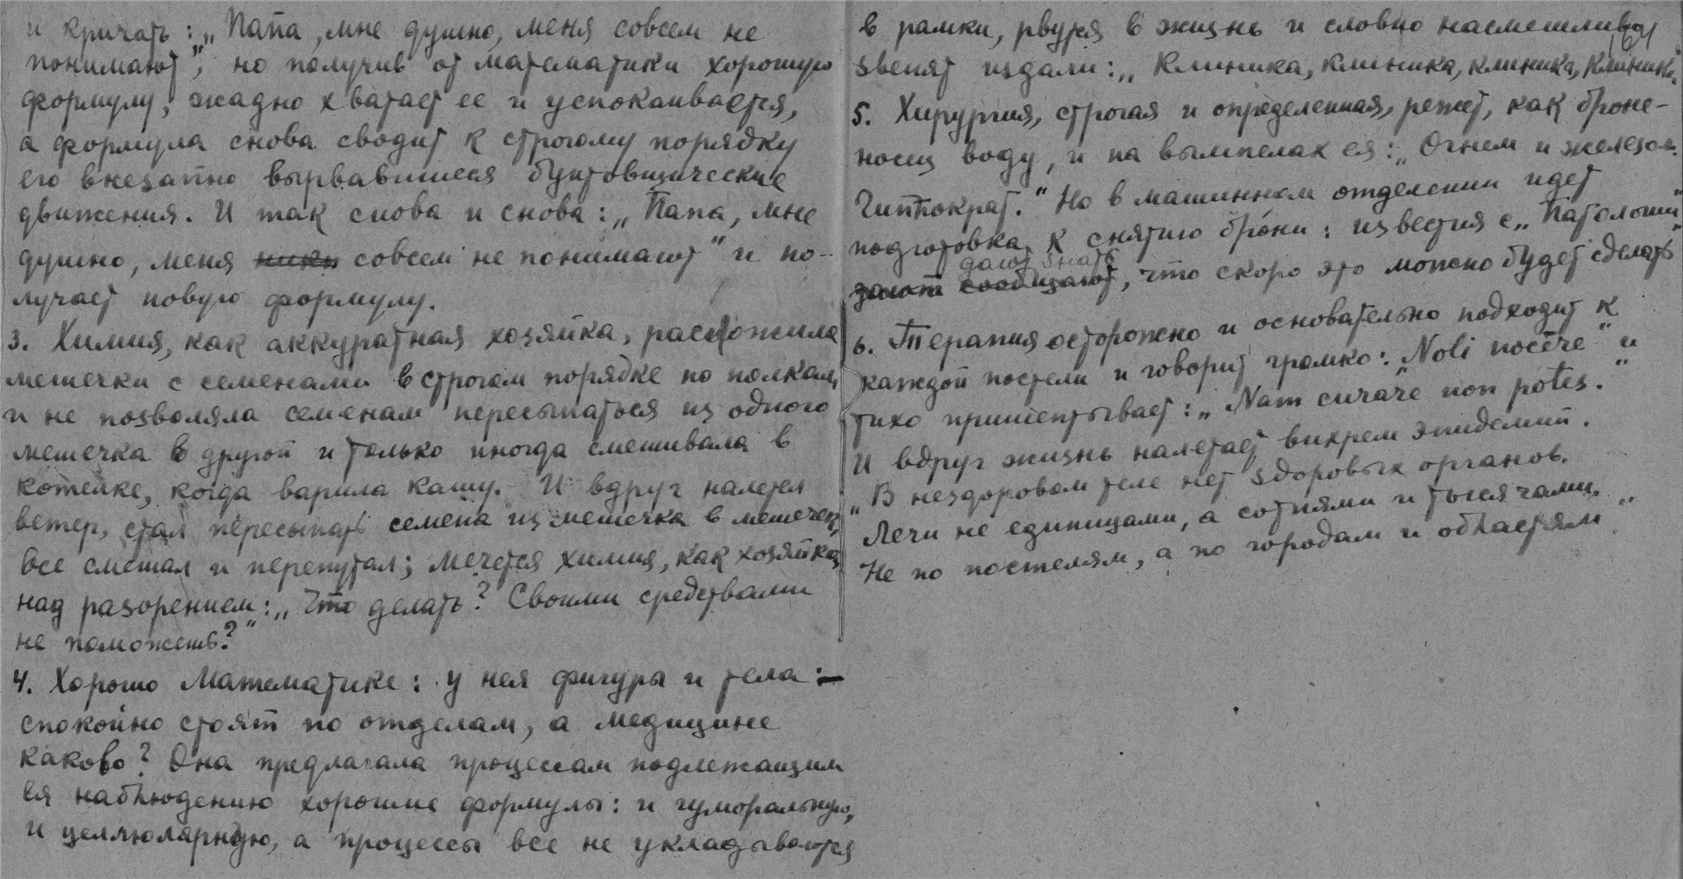 и кричать: „Папа, мне душно, меня совсем не
понимают“, но получив от математики хорошую
формулу, жадно хватает ее и успокаивается,
а формула снова сводит к строгому порядку
его внезапно вырвавшиеся бунтовщические
движения. И так снова и снова: „Папа, мне
душно, меня совсем не понимают“ и по-
лучает новую формулу.
3. Химия, как аккуратная хозяйка, расположила
мешечки с семенами в строгом порядке по полкам,
и не позволяла семенам пересыпаться из одного
мешечка в другой и только иногда смешивала в
котелке, когда варила кашу. И вдруг налетел
ветер, стал пересыпать семена из мешечка в мешечек,
все смешал и перепутал; мечется химия, как хозяйка
над разорением: „Что делать? Своими средствами
не поможешь?“
4. Хорошо Математике: у нея фигуры и тела:—
спокойно стоят по отделам, а медицине
каково? Она предлагала процессам подлежащим
ея наблюдению хорошие формулы: и гуморальную,
и целлюлярную, а процессы все не укладываются
в рамки, рвутся в жизнь и словно насмешливо
звенят издали: „Клиника, клиника, клиника, клиника“.
5. Хирургия, строгая и определенная, режет, как броне-
носец воду, и на вымпелах ея: „Огнем и железом.
Гиппократ.“ Но в машинном отделении идет
подготовка к снятию брони: известия с „Патологии“
дают знать
сообщают, что скоро это можно будет сделать
6. Терапия осторожно и основательно подходит к
каждой постели и говорит громко: „Noli nocere“ и
тихо пришептывает: „Nam curare non potes.“
И вдруг жизнь налетает вихрем эпидемий.
„В нездоровом теле нет здоровых органов.
Лечи не единицами, а сотнями и тысячами,
Не по постелям, а по городам и областям“